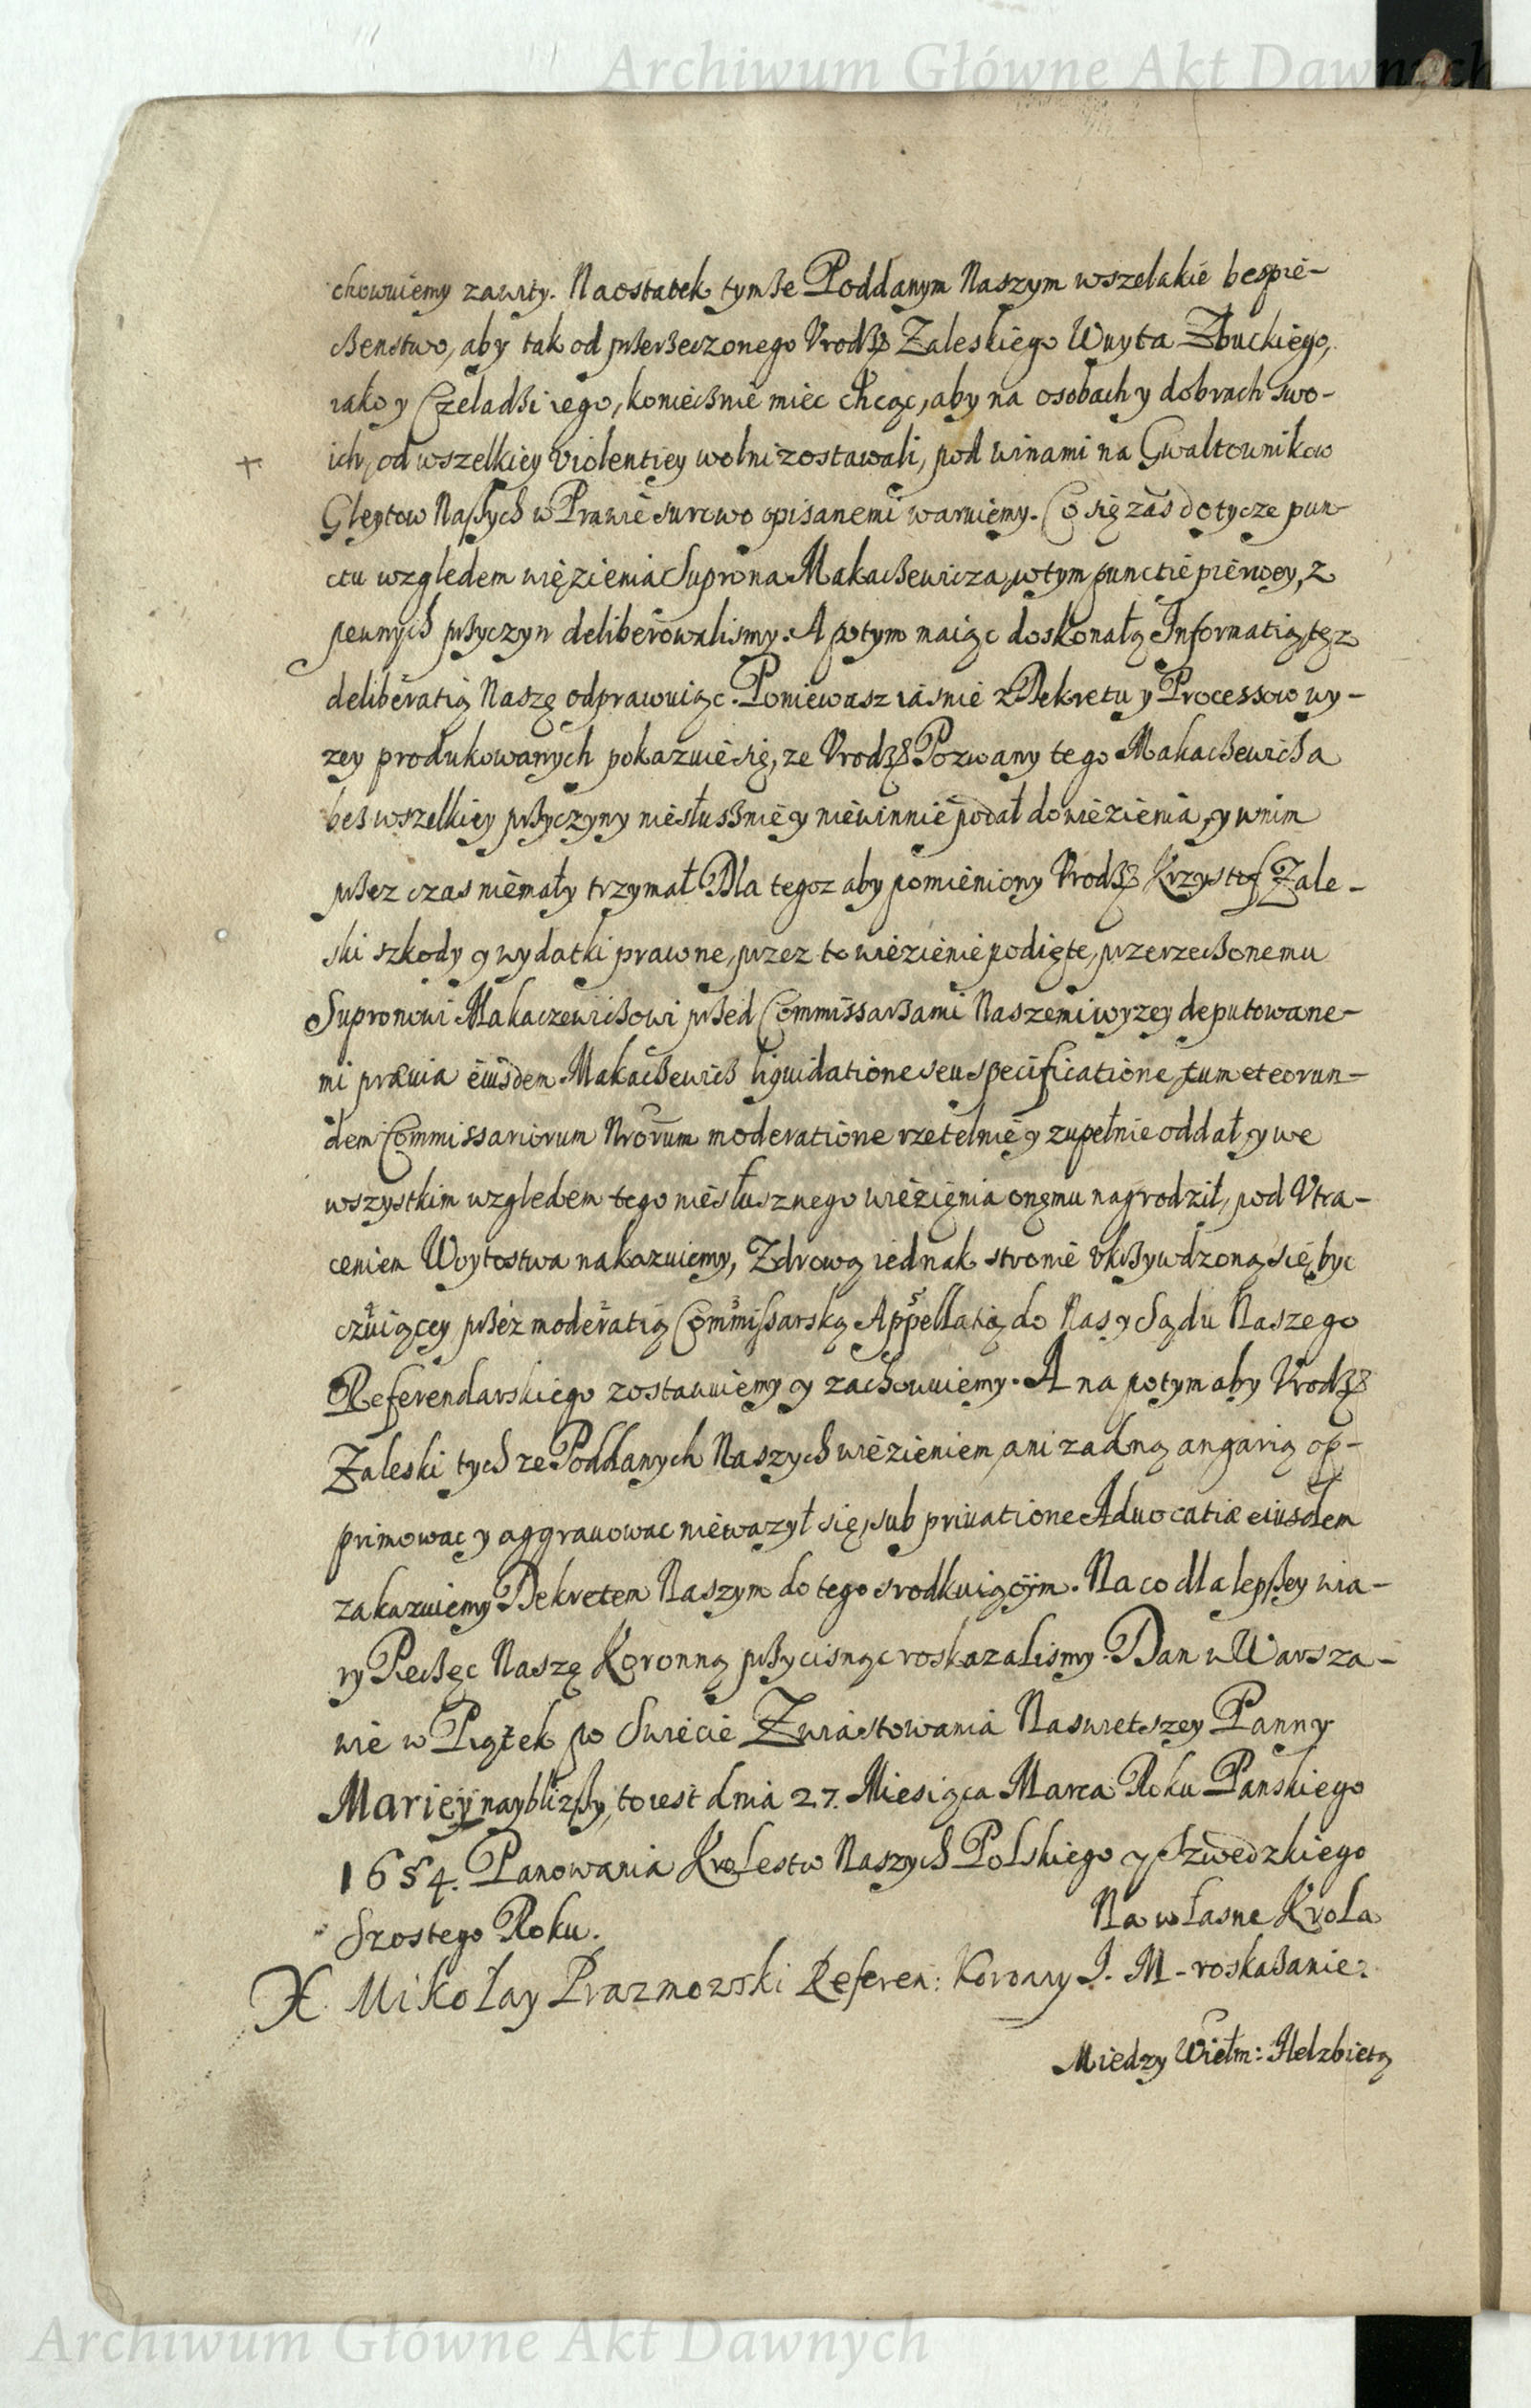 Archiwum Główne Akt Dawnych
chowuiemy zawity. Naostatek tymże Poddanym Naszym wszelakie bespie-
czenstwo, aby tak od przerzeczonego Vrodz Zaleskiego Wuyta Zbuckiego,
iako y Czeladzi iego, koniecznie miec chcąc, aby na osobach y dobrach swo-
ich, od wszelkiey violentiey wolni zostawali, pod winami na Gwaltownikow
Gleytow Naszych w Prawie surowo opisanemi waruiemy. Co się zas dotycze pun-
ctu względem więzienia Suprona Makaczewicza, w tym punctie pierwey, z
pewnych przyczyn deliberowalismy. A potym maiąc doskonałą Informatią, tęz
deliberatią Naszę odprawuiąc. Poniewasz iasnie z Dekretu y Processow wy-
zey produkowanych pokazuie się, ze Vrodz Pozwany tego Makaczewicza
bez wszelkiey przyczyny niesłusznie y niewinnie podał do wiezienia, y w nim
przez czas niemały trzymał Dla tegoz aby pomieniony Vrodz Krzysztof Zale-
ski szkody y wydatki prawne, przez to wiezienie podięte, przerzeczonemu
Supronowi Makaczewiczowi przed Commissarzami Naszemi wyzey deputowane-
mi prævia eiusdem Makaczewicz liquidatione seu specificatione, tum et eorun-
dem Commissariorum Nrorum moderatione rzetelnie y zupełnie oddał, y we
wszystkim względem tego niesłusznego więzięnia onęmu nagrodził, pod Vtra-
ceniem Woytostwa nakazuiemy, Zdrową iednak stronie vkrzywdzoną się byc
czuiącey przez moderatią Commissarską Appellatią do Nas y Sądu Naszego
Referendarskiego zostawuiemy y zachowuiemy. A na potym aby Vrodz
Zaleski tych ze Poddanych Naszych wiezieniem, ani zadną angarią op-
primowac y aggrauowac niewazył się, sub priuatione Aduocatiæ eiusdem
zakazuiemy Dekretem Naszym do tego srodkuiącym. Na co dla lepszey wia-
ry Pieczęc Naszę Koronną przycisnąc roskazalismy. Dan w Warsza-
wie w Piątek po Swięcie Zwiastowania Naswietszey Panny
Mariey nayblizszy, to iest dnia 27. Miesiąca Marca Roku Panskiego
1654. Panowania Krolestw Naszych Polskiego y Szwedzkiego
Szostego Roku. Na własne Krola
X. Mikołay Prazmowski Referen: Korony J. M. roskazanie.
Miedzy Wielm: Helzbietą
Archiwum Główne Akt Dawnych